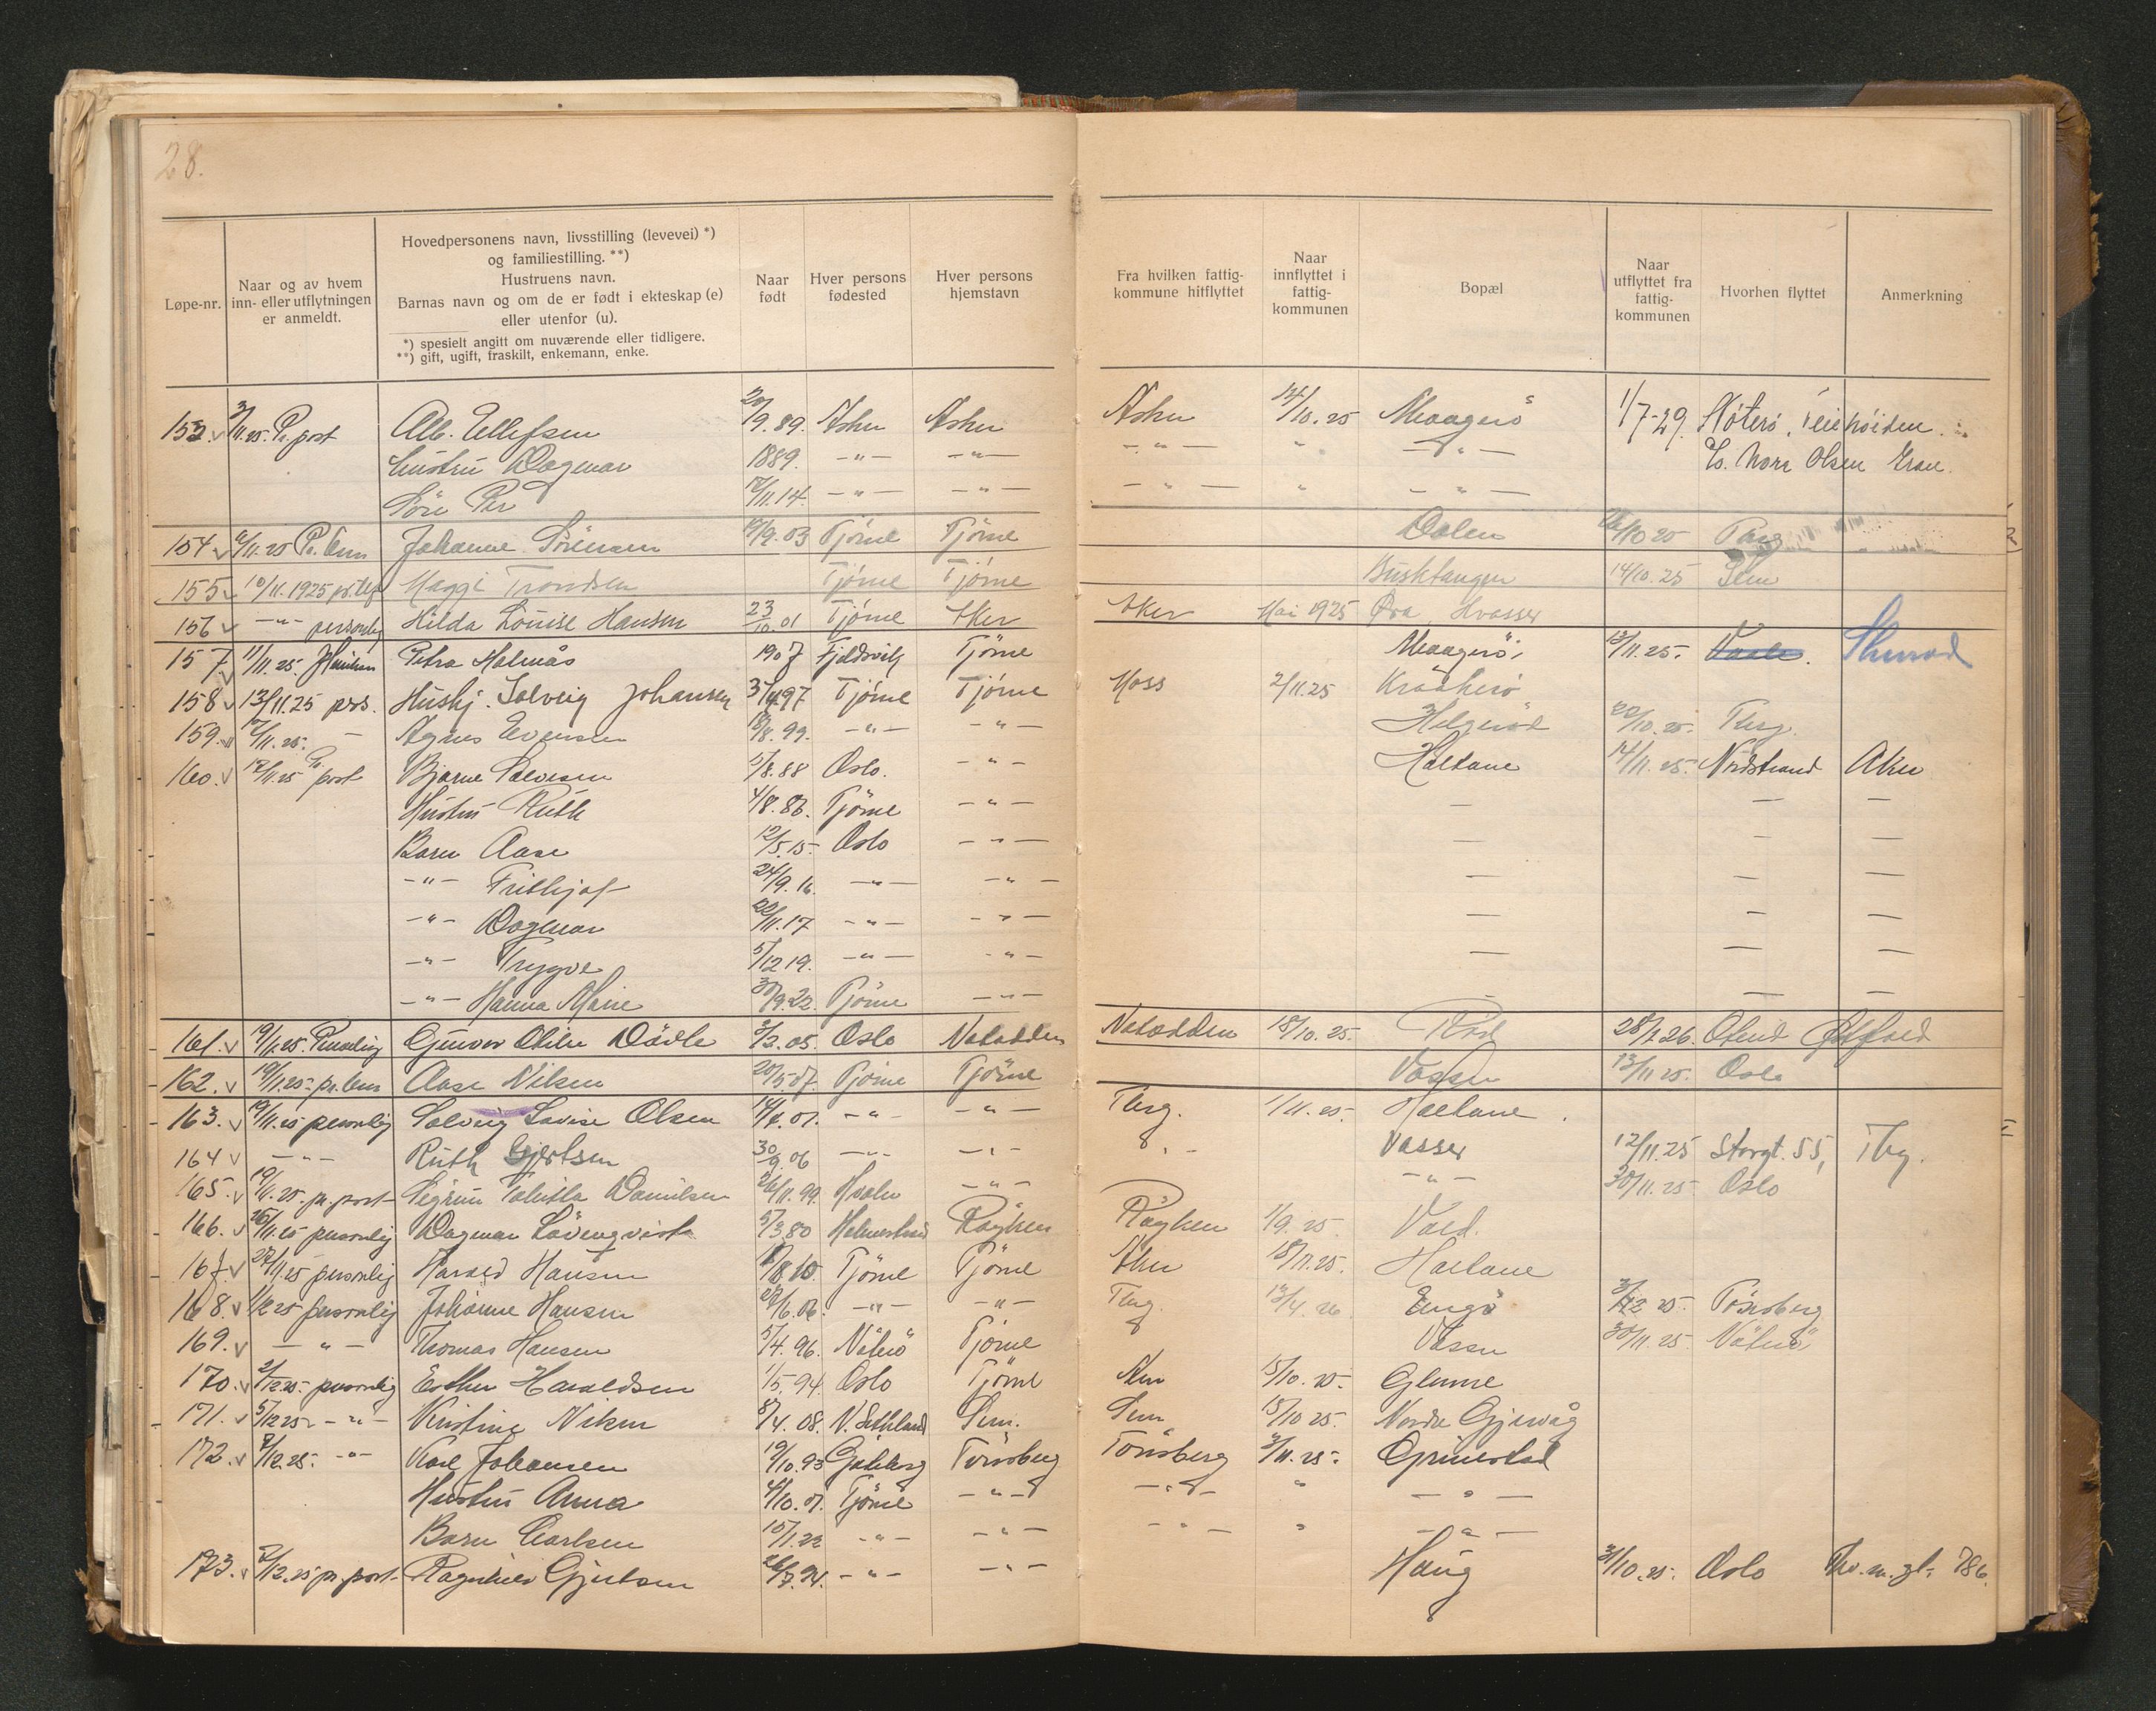 28.
Løpe-nr. | Naar og av hvem inn- eller utflytningen er anmeldt. | Hovedpersonens navn, livsstilling (levevei) *) og familiestilling. **) Hustruens navn. Barnas navn og om de er født i ekteskap (e) eller utenfor (u). *) spesielt angitt om nuværende eller tidligere. **) gift, ugift, fraskilt, enkemann, enke. | Naar født | Hver persons fødested | Hver persons hjemstavn | Fra hvilken fattig-kommune hitflyttet | Naar innflyttet i fattig-kommunen | Bopæl | Naar utflyttet fra fattig-kommunen | Hvorhen flyttet | Anmerkning
153. 3/11.25. Pr. post Alb. Ellefsen 20/9.89. Asker Asker Asker 14/10.25 Maagerö 1/7-29. Nøterø,
Hustru Dagmar 1889. -"- -"- -"- " -"- Olsen
Sön Per 12/11.14. -"- -"- -"- " -"-
154 6/11.25 Johanne Sörensen 19/9.03 Tjöme Tjöme Dalen 26/10 25 Tbrg
155 10/11.1925 pr. tlf Maggi Trondsen Tjöme Tjöme Busktangen 14/10.25 Sem
156 -"- personlig Hilda Louise Hansen 23/10.01 Tjöme Aker Aker Mai 1925 Øra Hvasser
157. 11/11.25. Petra Holmås 1907 Fjeldsvik Tjöme Maagerö 13/11.25. Vaale.
158 13/11.25 prs. Hushj. Solveig Johansen 3/4.97 Tjöme Tjöme Moss 2/11.25 Krååkerö
159. 17/11.25. - Agnes Evensen 18/8.99. -"- -"- Helgeröd 22/10.25. Tbrg.
160. 17/11.25 Pr. post Bjarne Salvesen 5/8.88 Oslo. -"- Haltane 14/11.25. Nordstrand Aker
Hustru Ruth 4/8.86. Tjöme -"- — — —
Barn Aase 12/5.15. Oslo -"- — — —
-"- Frithjof 24/9.16. -"- -"- — — —
-"- Dagmar 22/11.17 -"- -"- — — —
-"- Trygve 5/12 19. -"- -"- — — —
-"- Hanna Marie 30/9.22. Tjöme -"- — — —
161. 19/11.25. Personlig Gunvor Otilie 3/2.05. Oslo Notodden Notodden 18/10.25. Röd 28/1.26. Østfold
162. 19/11.25. Aase Nilsen 20/5 07. Tjöme Tjöme Vasser 13/11 25. Oslo
163. 19/11.25 personlig Solveig Lovise Olsen 14/4.01. -"- -"- Tbrg. 1/11.25. Haltane.
164 -"- Ruth Gjertsen 30/9.06 -"- -"- -"- Vasser 12/11.25 Storgt. 55, Tbg.
165. 19/11.25. pr. post Sigrun Danielsen 26/11.99. Hvaler -"- -"- 30/11.25 Oslo
166. 26/11.25 personlig Dagmar Lövenqvist 5/3.80 Holmestrand Röyken Röyken 1/9.25
167. 27/11.25 personlig Harald Hansen Tjöme Tjöme Aker 18/11.25. Haltane
168. 1/12 25 personlig Johanne Hansen 27/6.06. -"- -"- Tbrg. 13/4.26 Engö 3/12 25. Tönsberg
169. -"- Thomas Hansen 5/4.96. Nöterö Tjöme Vasser 30/11.25. Nöterö
170. 2/12.25. personlig Esther Haraldsen 1/5.94. Oslo Tjöme Aker 15/10.25. Glenne
171. 5/12 25 -"- Kristine Nilsen 8/4.08. Sem. Sem 15/10 25. Nordre Gjervåg
172. 7/12.25. -"- Karl Johansen 19/10.93 Tönsberg Tönsberg 3/11.25. Grimestad
Hustru Anna 4/10.01. Tjöme -"- -"- " -"-
Barn Carlsen 15/1.22 -"- -"- -"- " -"-
173. 7/12.25 pr. post Ragnhild Gjertsen 26/7.94. -"- -"- Haug 31/10.25. Oslo 786.